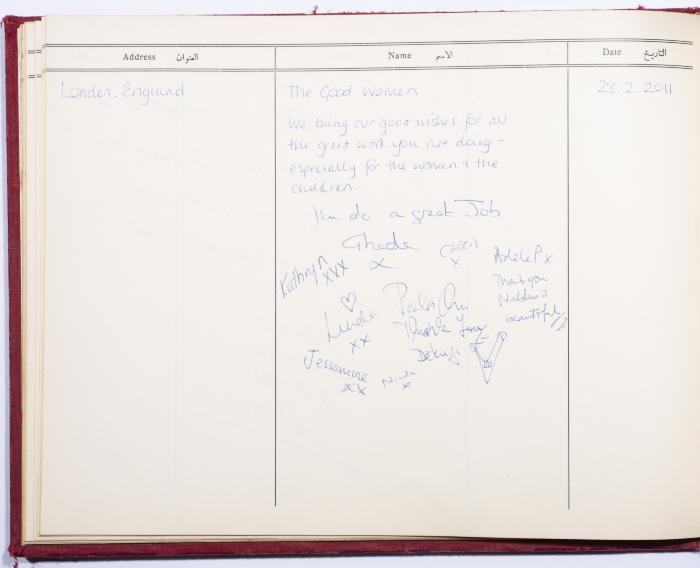 Address العنوان
Name الاسم
Date التاريخ
London, England
The Good Women
28.2.2011
We bring our good wishes for all
the great work you are doing -
especially for the women & the
children.
You do a great Job
Ghada
x
Chris
x
Kathryn
xxx
Adele P x
Thank you
Nablus is
beautiful
Linda
xx
Paula
Thank you
Jessamine
xx
x